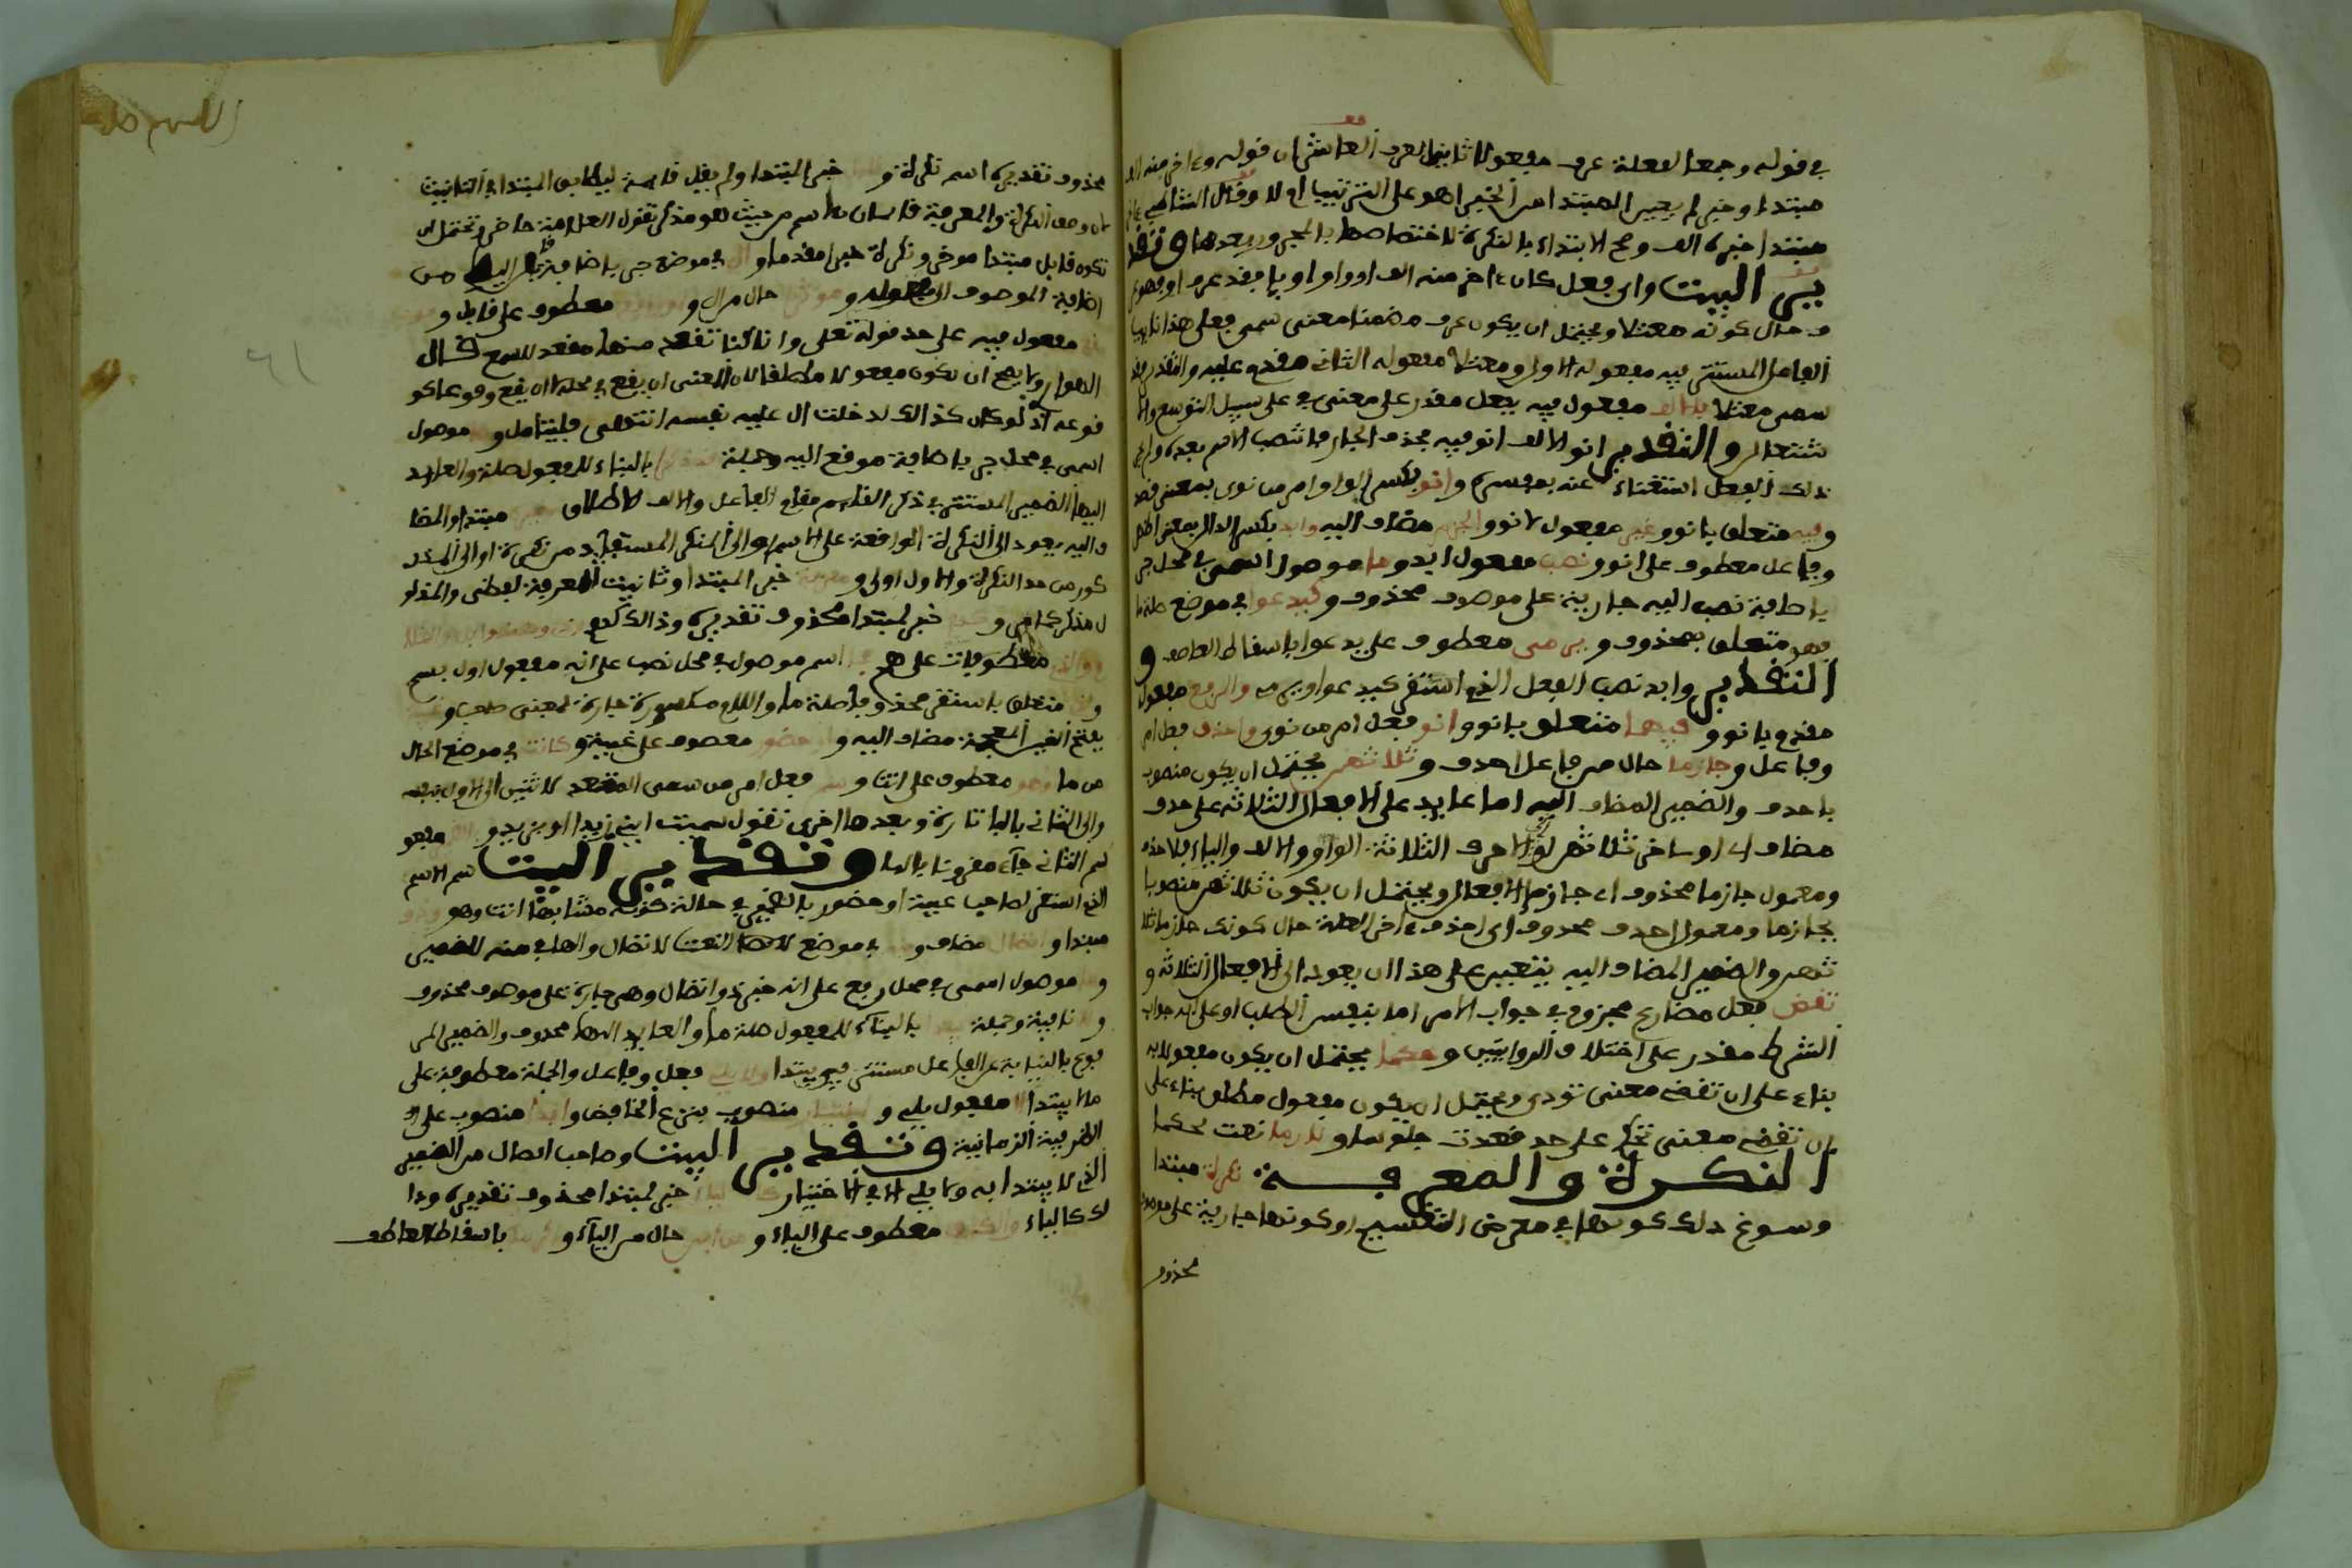 في قوله وجمعا لفعلة عرف مفعولا ثانيا لعرف العاشر ان قوله وءاخر منه الف
مبتدا وخبر لم يجير المبتدا من الخبر اهو على الترتيب او لا وقال الشاطبي ءاخر
مبتدا خبره الف وصح الابتداء بالنكرة لاختصاصها بالمجرور بعدها وتقد
ير البيت واي فعل كان ءاخر منه الف او واو او يا فقد عرف او فهو
حال كونه معتلا ويحتمل ان يكون عرف مضمنا معنى سمى فعلى هذا نايب
الفاعل المستتر فيه مفعوله الاول ومعتلا مفعوله الثاني مقدم عليه والتقدير فقد
سمى معتلا فالالف مفعول فيه بفعل مقدر على معنى في على سبيل التوسع والا
شتغال والتقدير انو الالف انو فيه بحذف الجار فانتصب الاسم بعده ولم
ذلك الفعل استغناء عنه بمفسره وانو بكسر الواو امر من نوى بمعنى قصد
وفيه متعلق بانو وغير مفعول لانو والجزم مضاف اليه وابد بكسر الدال بمعنى اظهر
وفاعل معطوف على انو ونصب مفعول ابد وما موصول اسمي في محل جر
باضافة نصب اليه جارية على موصوف محذوف وكيدعوا في موضع صلة ما
فهو متعلق بمحذوف ويرمى معطوف على يدعوا باسقاط العاطف و
التقدير وابد نصب الفعل الذي استقر كيدعوا ويرمي والرفع مفعول
مقدم بانو وفيهما متعلق بانو وانو فعل امر من نوى واحذف فعل امر
وفاعل وجازما حال من فاعل احذف وثلاثهن يحتمل ان يكون منصوب
باحذف والضمير المضاف اليه اما عايد على الافعال الثلاثة على حذف
مضاف اي اواخر ثلاثهن او الاحرف الثلاثة الواو والالف والياء فلا حذف
ومعمول جازما محذوف اي جازم الافعال ويحتمل ان يكون ثلاثهن منصوبا
بجازما ومعمول احذف محذوف اي احذف ءاخر العلة حال كونك جازما ثلا
ثهن والضمير المضاف اليه يتعين على هذا ان يعود الى الافعال الثلاثة و
تقض فعل مضارع مجزوم في جواب الامر اما بنفس الطلب او على انه جواب
الشرط مقدر على اختلاف الروايتين وحكما يحتمل ان يكون مفعولا به
بناء على ان تقض بمعنى تودي ويحتمل ان يكون مفعول مطلق بناء على
ان تقض بمعنى تحكم على حد قعدت جلوسا ولازما نعت لحكما
النكرة والمعرفة نكرة مبتدا
وسوغ ذلك كونها في معرض التقسيم او كونها جارية على موصوف
محذوف
محذوف تقديره اسم نكرة و خبر المبتدا ولم يقل قابلة ليطابق المبتدا في التانيث
لان وصف النكرة والمعرفة قاسمان للاسم من حيث هو مذكر تقول العلامة حاضر ويحتمل ان
تكون قابل مبتدا موخر ونكرة خبرا مقدما وال في موضع جر باضافة قابل اليها من
اضافة الموصوف الى مفعوله و حال من ال و معطوف على قابل و
مفعول فيه على حد قوله تعلى وانا كنا نقعد منها مقعد للسمع قال
الهوارى ولا يصح ان يكون مفعولا مطلقا لان المعنى ان يقع في محله لا ان يقع وقوعا كو
قوعه اذ لو كان كذالك لدخلت ال عليه نفسه انتهى فليتامل و موصول
اسمي في محل جر باضافة موقع اليه وجملة بالبناء للمفعول صلة والعايد
اليها الضمير المستتر في ذكر القايم مقام الفاعل والالف للاطلاق مبتدا والمضا
ف اليه يعود الى النكرة الواقعة على الاسم او الى المنكر المستفاد من نكرة او الى المذ
كور من حد النكرة والاول اولى و خبر المبتدا وتانيث المعرفة لفظي والمدلو
ل مذكر كما مر و خبر لمبتدا محذوف تقديره وذالك كهم
معطوفات على هم اسم موصول في محل نصب على انه مفعول اول بسم
متعلق باستقر محذوفا صلة ما واللام مكسورة جارة لمعنى صاحب و
بفتح الغين المعجمة مضاف اليه و حضور معطوف على غيبة وكانت في موضع الحال
من ما وهو معطوف على انت و فعل امر من سمى المتعدي لاثنين الى الاول بنفسه
والى الثاني بالبا تارة وبعدها اخرى تقول سميت ابني زيدا او بزيد و مفعو
لسم الثاني جآء مقرونا بالبا وتقدير البيت سم الاسم
الذي استقر لصاحب غيبة او حضور بالضمير في حالة كونه مشابها انت وهو وذو
مبتدا و اتصال مضاف و في موضع النعت لاتصال والهاء في منه للضمير
و موصول اسمي في محل رفع على انه خبر ذو اتصال وهي جارية على موصوف محذوف
و نافية وجملة بالبناء للمفعول صلة ما والعايد اليها محذوف والضمير المر
فوع بالنيابة عن الفاعل مستتر في يبتدا ولا يلي فعل وفاعل والجملة معطوفة على
لا يبتدا الا مفعول يلي و منصوب بنزع الخافض وابدا منصوب على
الظرفية الزمانية وتقدير البيت وصاحب اتصال من الضمير
الذي لا يبتدا به ولا يلي الا في الاختيار خبر لمبتدا محذوف تقديره وذا
لك كالياء والكاف معطوف على الياء و من ابني حال من الياء و باسقاط العاطف